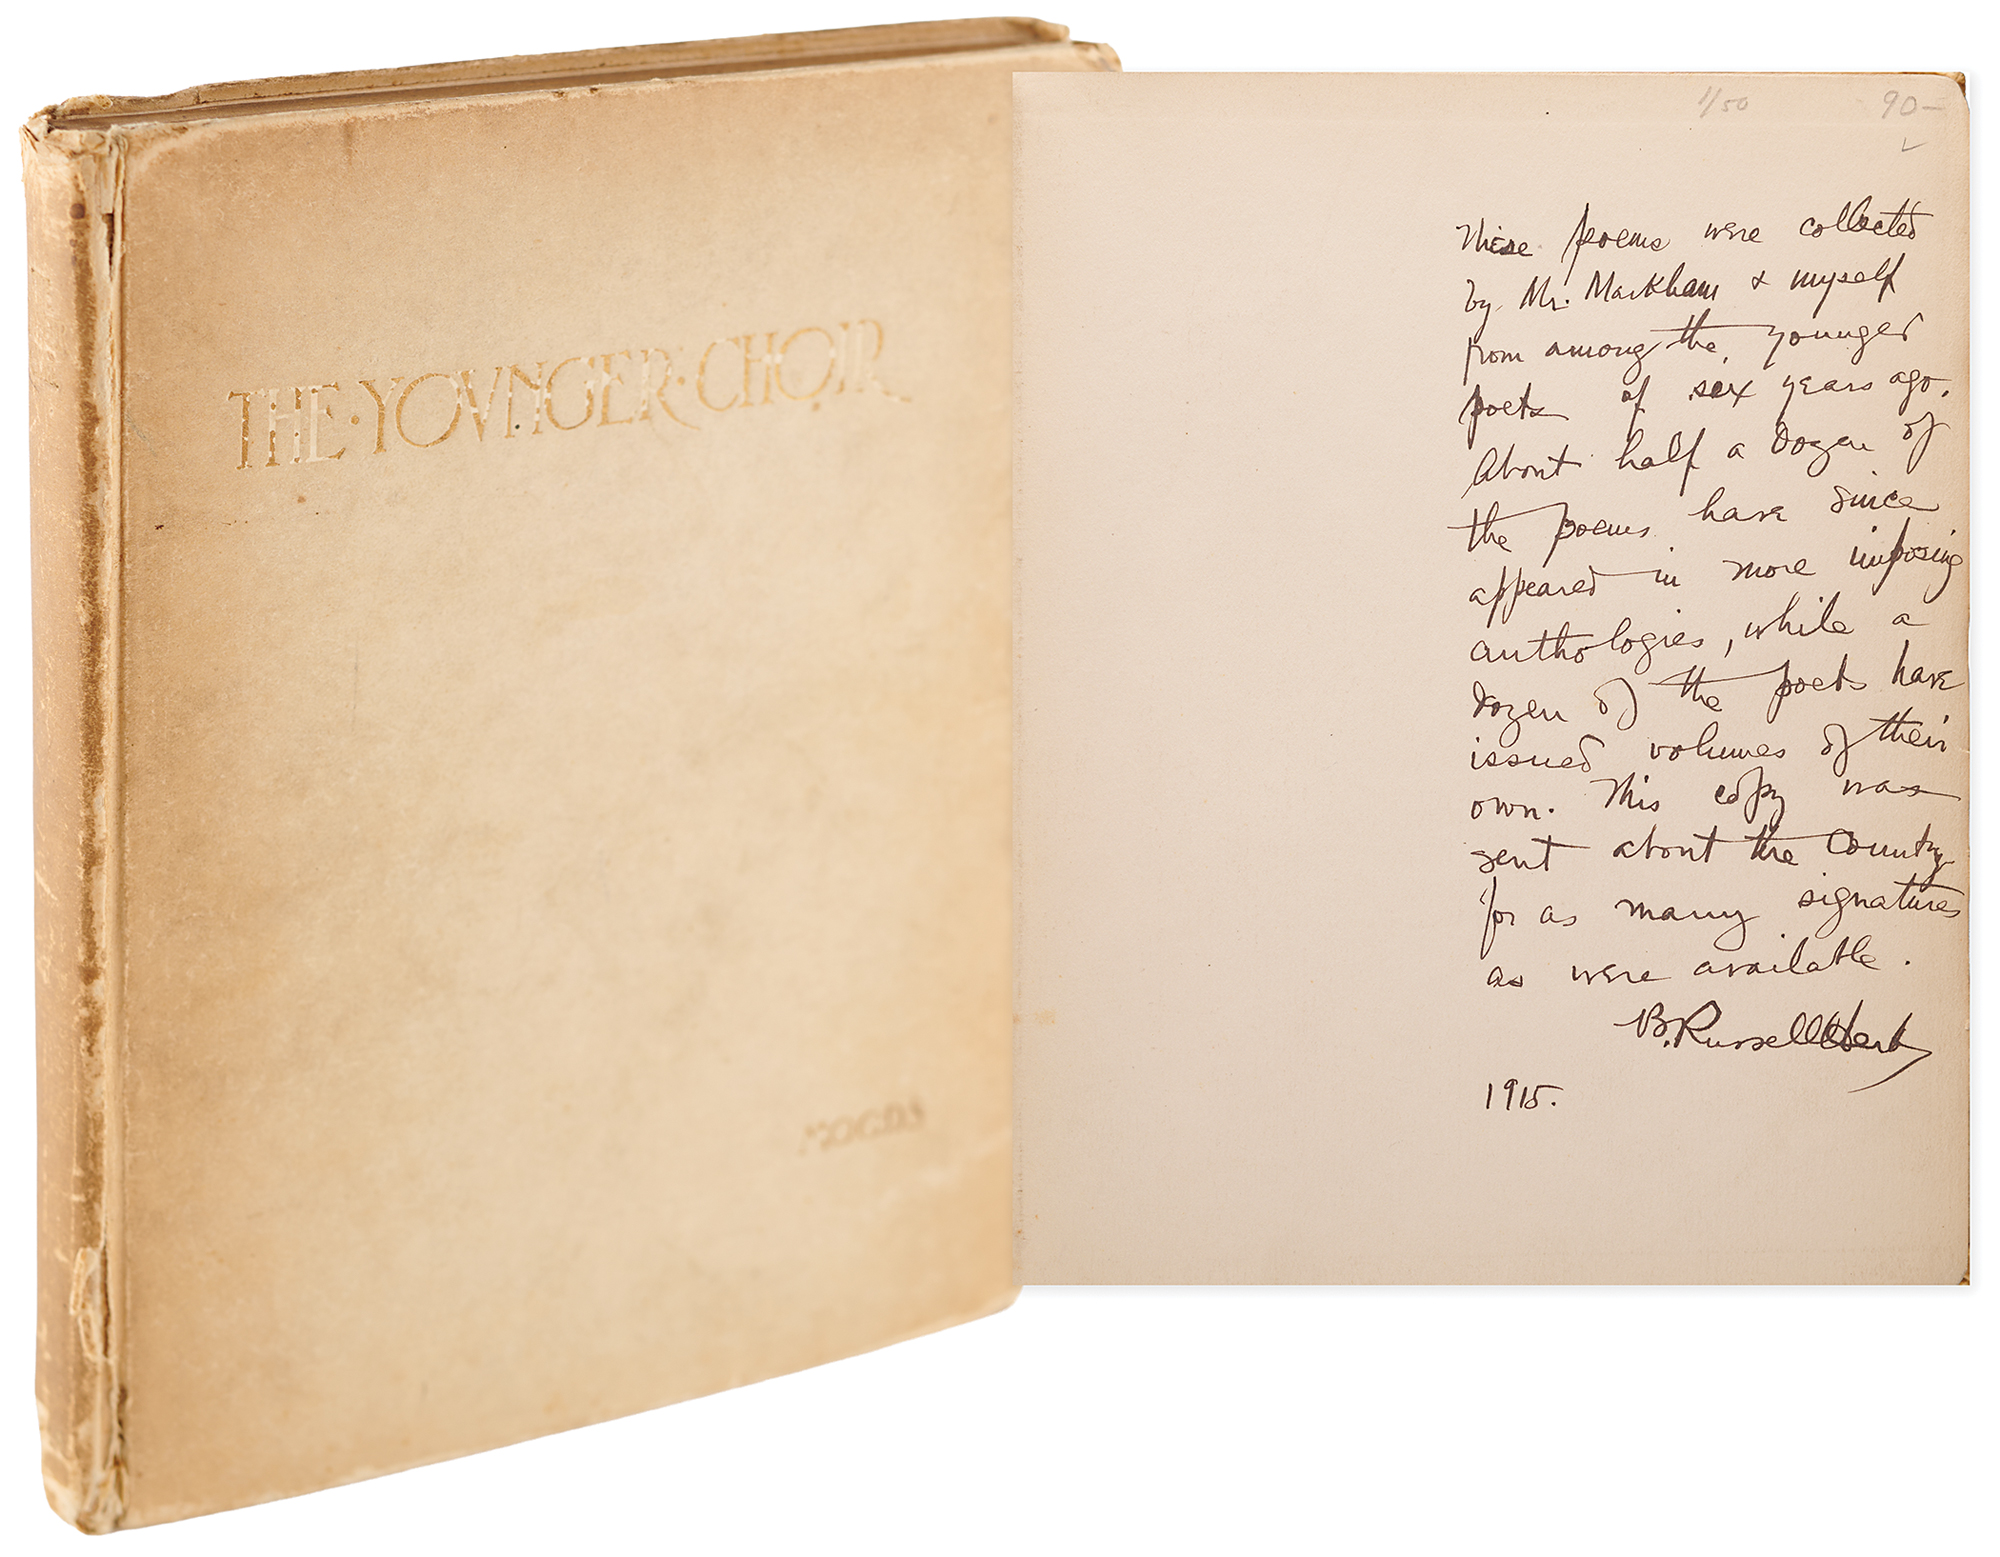 THE·YOVNGER·CHOIR
MOODS
1/50
90–
These poems were collected
by Mr. Markham & myself
from among the, younger
poets of six years ago.
About half a dozen of
the poems have since
appeared in more imposing
anthologies, while a
dozen of the poets have
issued volumes of their
own. This copy was
sent about the Country
for as many signatures
as were available.
B. Russell Herts
1915.